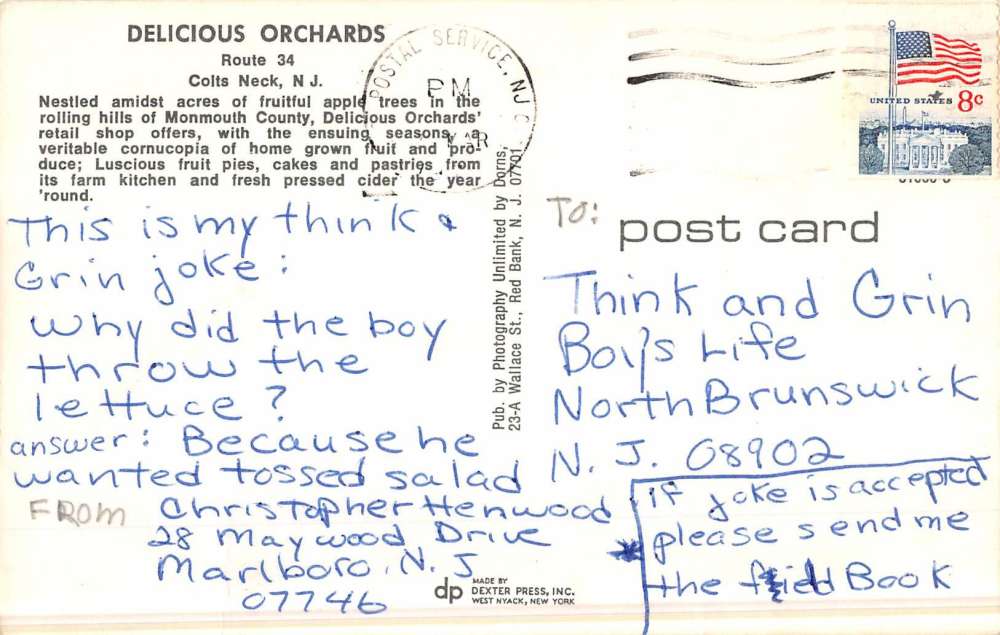 DELICIOUS ORCHARDS
Route 34
Colts Neck, N J.
Nestled amidst acres of fruitful apple trees in the
rolling hills of Monmouth County, Delicious Orchards'
retail shop offers, with the ensuing seasons, a
veritable cornucopia of home grown fruit and pro-
duce; Luscious fruit pies, cakes and pastries from
its farm kitchen and fresh pressed cider the year
'round.
POSTAL SERVICE, NJ
PM
UNITED STATES 8c
This is my think &
Grin joke:
Why did the boy
throw the
lettuce?
answer: Because he
wanted tossed salad
FROM Christopher Henwood
28 Maywood Drive
Marlboro, N. J
07746
Pub. by Photography Unlimited by Dorns,
23-A Wallace St., Red Bank, N. J. 07701
TO:
post card
Think and Grin
Boy's Life
North Brunswick
N. J. 08902
if joke is accepted
please send me
the field Book
dp MADE BY
DEXTER PRESS, INC.
WEST NYACK, NEW YORK